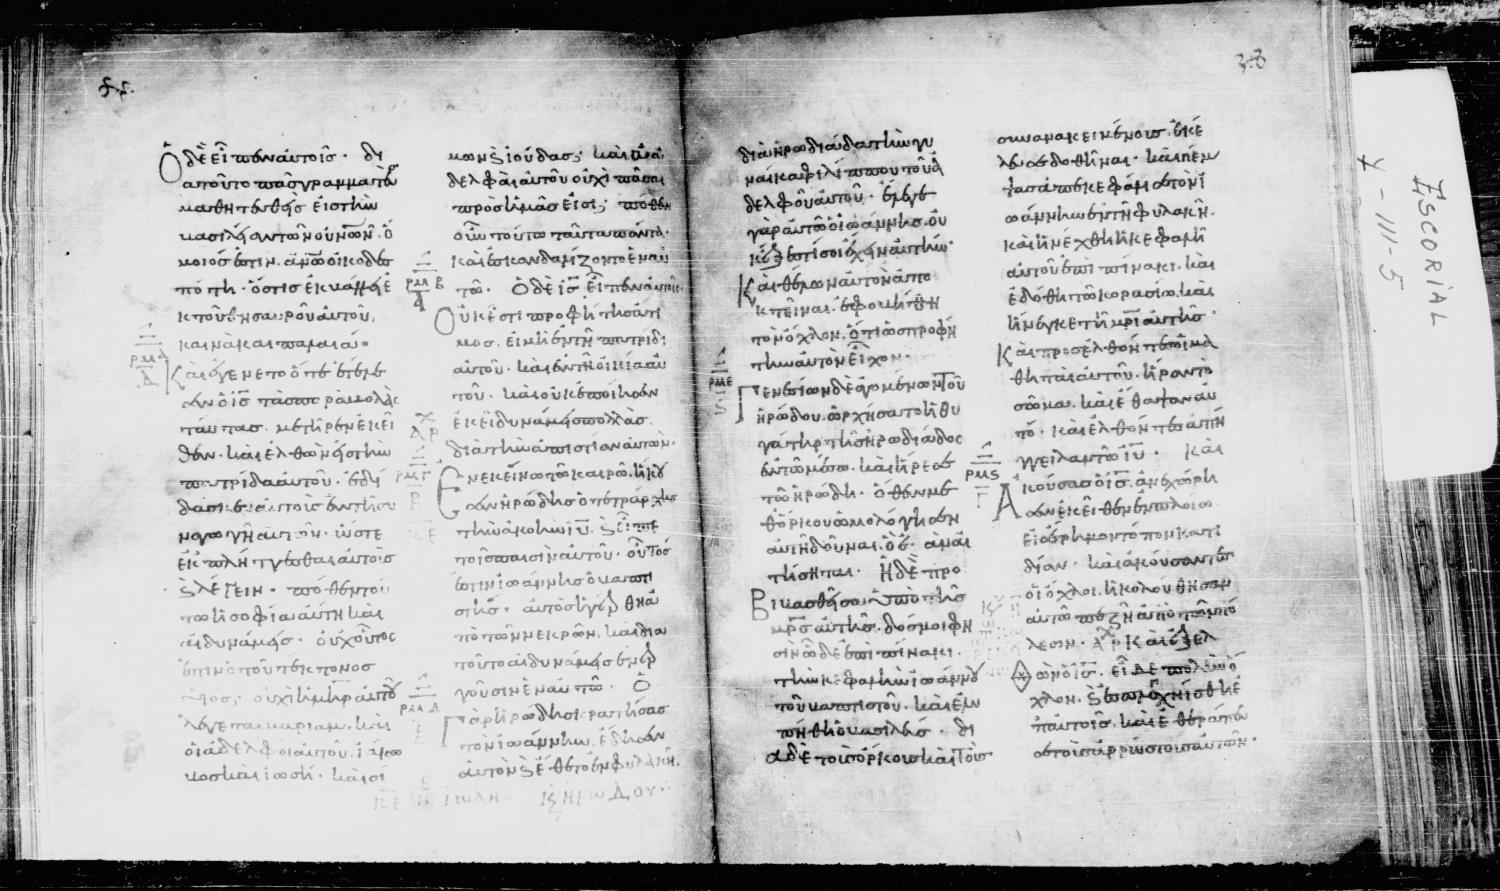 Ὁ δὲ εἶπεν αὐτοῖς· δι
α τοῦτο πᾶς γραμματεὺ
μαθητευθεὶς εἰς τὴν
βασιλείαν τῶν οὐνῶν· ὅ
μοιός ἐστιν ἀνῶ οἰκοδεσ
πότη· ὅστις ἐκβάλλει ἐ
κ τοῦ θησαυροῦ αὐτοῦ
καινὰ καὶ παλαιά·
Καὶ ἐγένετο ὅτε ἐτέλε
σεν ὁ ις τὰς παραβολὰς
ταύτας· μετῆρεν ἐκεῖ
θεν· καὶ ἐλθὼν εἰς τὴν
πατρίδα αὐτοῦ· ἐδί
δασκεν αὐτοὺς ἐν τῇ συ
ναγωγῇ αὐτῶν· ὥστε
ἐκπλήττεσθαι αὐτοὺς
καὶ λέγειν· πόθεν τού
τω ἡ σοφία αὕτη καὶ
αἱ δυνάμεις· οὐχ οὗτός
ἐστιν ὁ τοῦ τέκτονος
οὐχὶ ἡ μηρ αὐτοῦ
λέγεται μαριὰμ· καὶ
οἱ ἀδελφοὶ αὐτοῦ· ἰάκω
βος καὶ ἰωσῆ· καὶ σι
μων καὶ ἰούδας; καὶ αἱ ἀ
δελφαὶ αὐτοῦ οὐχὶ πᾶσαι
πρὸς ἡμᾶς εἰσι; πόθεν
οὖν τούτω ταῦτα πάντα·
καὶ ἐσκανδαλίζοντο ἐν αὐ
τῶ· Ὁ δὲ ις εἶπεν αὐτοῖς·
Οὐκ ἔστι προφήτης ἄτι
μος· εἰ μὴ ἐν τῇ πατρίδι
αὐτοῦ· καὶ ἐν τῇ οἰκία αὐ
τοῦ· καὶ οὐκ ἐποίησεν
ἐκεῖ δυνάμεις πολλὰς
διὰ τὴν ἀπιστίαν αὐτῶν·
Ἐν ἐκείνω τῶ καιρῶ· ἤκου
σεν ἡρώδης ὁ τετράρχης
τὴν ἀκοὴν ιυ· καὶ εἶπε
τοῖς παισὶν αὐτοῦ· οὗτός
ἐστιν ἰωάννης ὁ βαπτι
στής· αὐτὸς ἠγέρθη ἀ
πὸ τῶν νεκρῶν· καὶ διὰ
τοῦτο αἱ δυνάμεις ἐνερ
γοῦσιν ἐν αὐτῶ· Ὁ
Γὰρ ἡρώδης κρατήσας
τὸν ἰωάννην· ἔδησεν
αὐτὸν καὶ ἔθετο ἐν φυλακῇ·
διὰ ἡρωδιάδα τὴν γυ
ναῖκα φιλίππου τοῦ ἀ
δελφοῦ αὐτοῦ· ἔλεγε
γὰρ αὐτῶ ὁ ἰωάννης· οὐ
κ ἔξεστί σοι ἔχειν αὐτήν·
Καὶ θέλων αὐτὸν ἀπο
κτεῖναι· ἐφοβήθη
τὸν ὄχλον· ὅτι ὡς προφή
την αὐτὸν εἶχον·
Γενεσίων δὲ ἀγομένων τοῦ
ἡρώδου· ὠρχήσατο ἡ θυ
γάτηρ τῆς ἡρωδιάδος
ἐν τῶ μέσω· καὶ ἤρεσε
τῶ ἡρώδη· ὅθεν με
θ' ὅρκου ὡμολόγησεν
αὐτῇ δοῦναι· ὃ ἐ· ἂν αἰ
τήσηται· Ἡ δὲ προ
βιβασθεῖσα ὑπὸ τῆς
μρς αὐτῆς· δός μοι φη
σὶν ὧδε ἐπὶ πίνακι·
τὴν κεφαλὴν ἰωάννου
τοῦ βαπτιστοῦ· καὶ ἐλυ
πήθη ὁ βασιλεύς· δι
ὰ δὲ τοὺς ὅρκους καὶ τοὺς
συνανακειμένους· ἐκέ
λευσε δοθῆναι· καὶ πέμ
ψας ἀπεκεφάλισε τὸν ἰ
ωάννην ἐν τῇ φυλακῇ·
καὶ ἠνέχθη ἡ κεφαλὴ
αὐτοῦ ἐπὶ πίνακι· καὶ
ἐδόθη τῶ κορασίω· καὶ
ἤνεγκε τῇ μρι αὐτῆς·
Καὶ προσελθόντες οἱ μα
θηταὶ αὐτοῦ· ἦραν τὸ
σῶμα· καὶ ἔθαψαν αὐ
τό· καὶ ἐλθόντες ἀπή
γγειλαν τῶ ιυ· Καὶ
Ἀκούσας ὁ ις· ἀνεχώρη
σεν ἐκεῖθεν ἐν πλοίω
εἰς ἔρημον τόπον κατ' ἰ
δίαν· καὶ ἀκούσαντες
οἱ ὄχλοι· ἠκολούθησαν
αὐτῶ πεζῇ ἀπὸ τῶν πό
λεων· Καὶ ἐξελ
θὼν ὁ ις· εἶδε πολὺν ὄ
χλον· καὶ ἐσπλαγχνίσθη ἐ
π' αὐτοῖς· καὶ ἐθεράπευ
σε τοὺς ἀρρώστους αὐτῶν·
ESCORIAL
Y-III-5